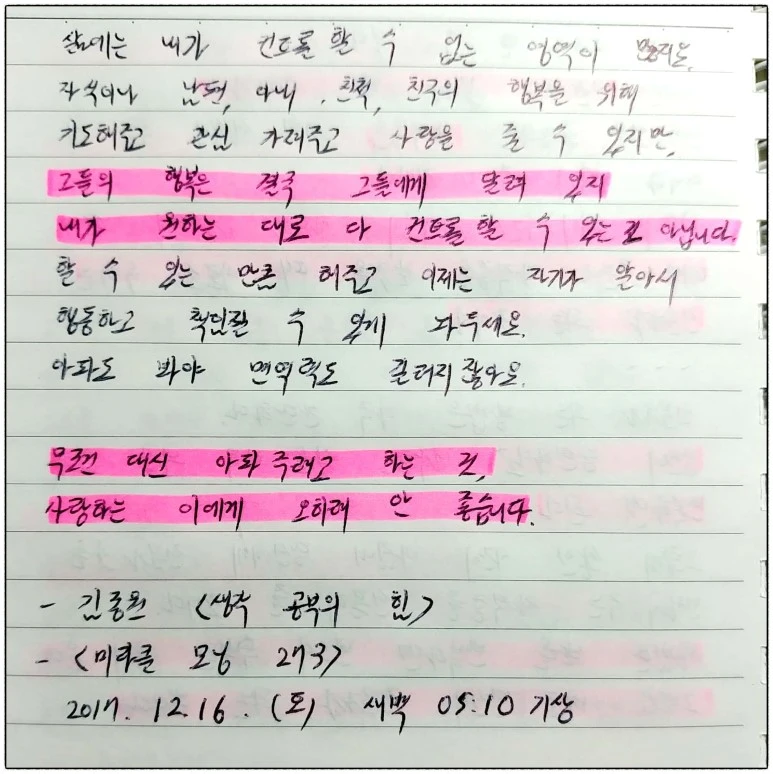 삶에는 내가 컨트롤 할 수 없는 영역이 많지요.
자식이나 남편, 아내, 친척, 친구의 행복을 위해
기도해주고 관심 가져주고 사랑을 줄 수 있지만,
그들의 행복은 결국 그들에게 달려 있지
내가 원하는 대로 다 컨트롤 할 수 있는 건 아닙니다.
할 수 있는 만큼 해주고 이제는 자기가 알아서
행동하고 책임질 수 있게 놔두세요.
아파도 봐야 면역력도 길러지잖아요.
무조건 대신 아파 주려고 하는 것,
사랑하는 이에게 오히려 안 좋습니다.
- 김종원 <생각 공부의 힘>
- <미라클 모닝 273>
2017. 12. 16. (토) 새벽 05:10 기상